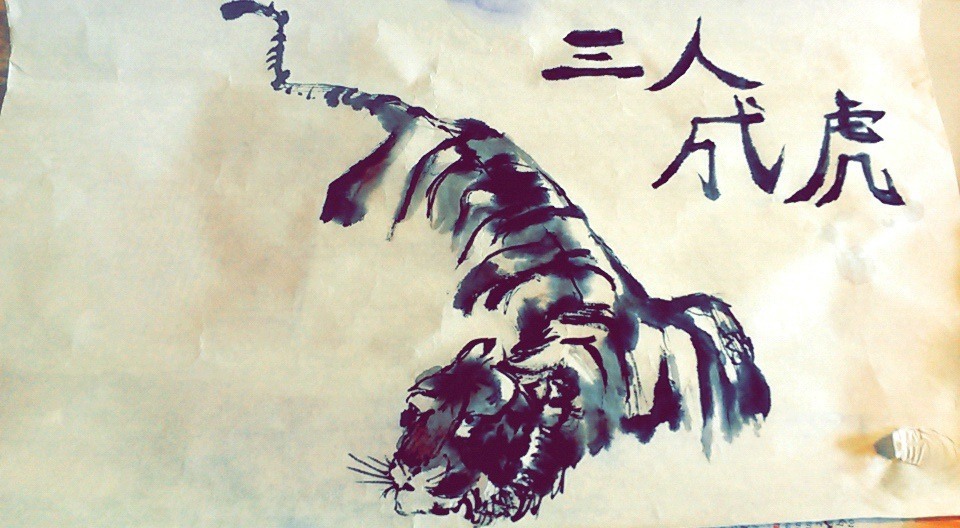 三人
成虎